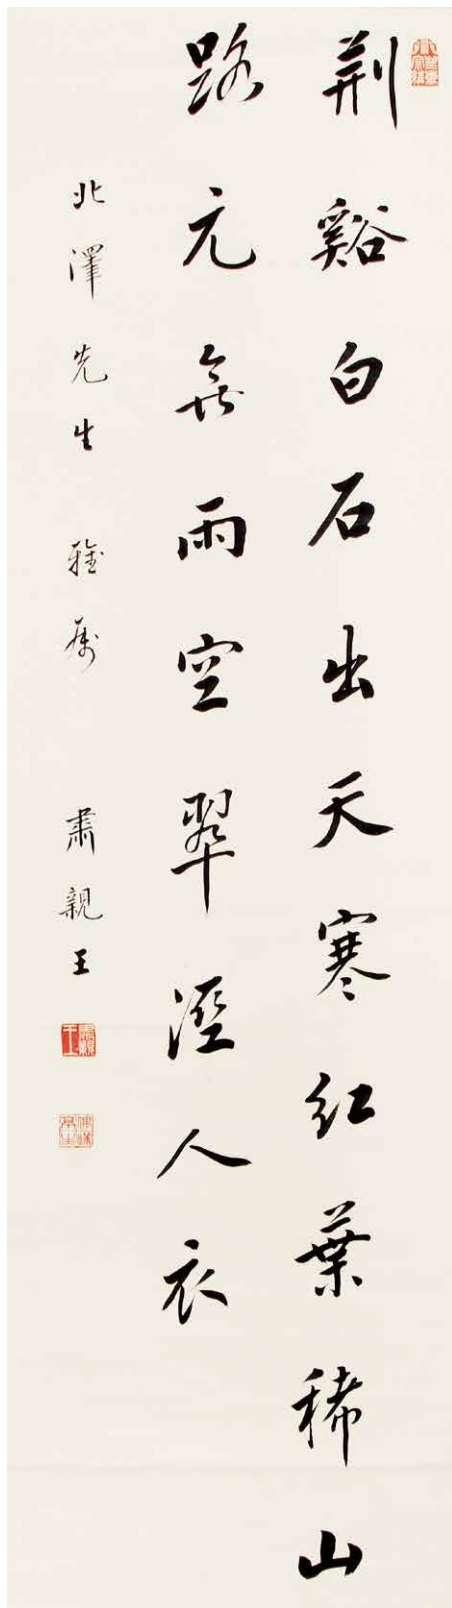 荆谿白石出天寒紅葉稀山
路元無雨空翠溼人衣
北澤先生 雅属 肅親王
肅親王